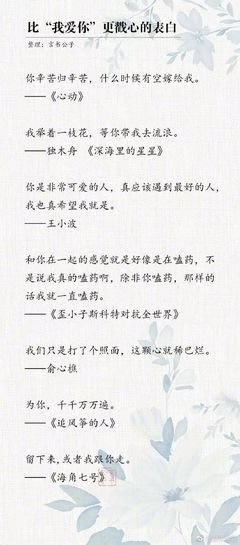 比“我爱你”更戳心的表白
整理：言书公子
你辛苦归辛苦，什么时候有空嫁给我。
——《心动》
我举着一枝花，等你带我去流浪。
——独木舟 《深海里的星星》
你是非常可爱的人，真应该遇到最好的人，
我也真希望我就是。
——王小波
和你在一起的感觉就是好像是在嗑药，不
是说我真的嗑药啊，除非你嗑药，那样的
话我就一直嗑药。
——《歪小子斯科特对抗全世界》
我们只是打了个照面，这颗心就稀巴烂。
——俞心樵
为你，千千万万遍。
——《追风筝的人》
留下来，或者我跟你走。
——《海角七号》